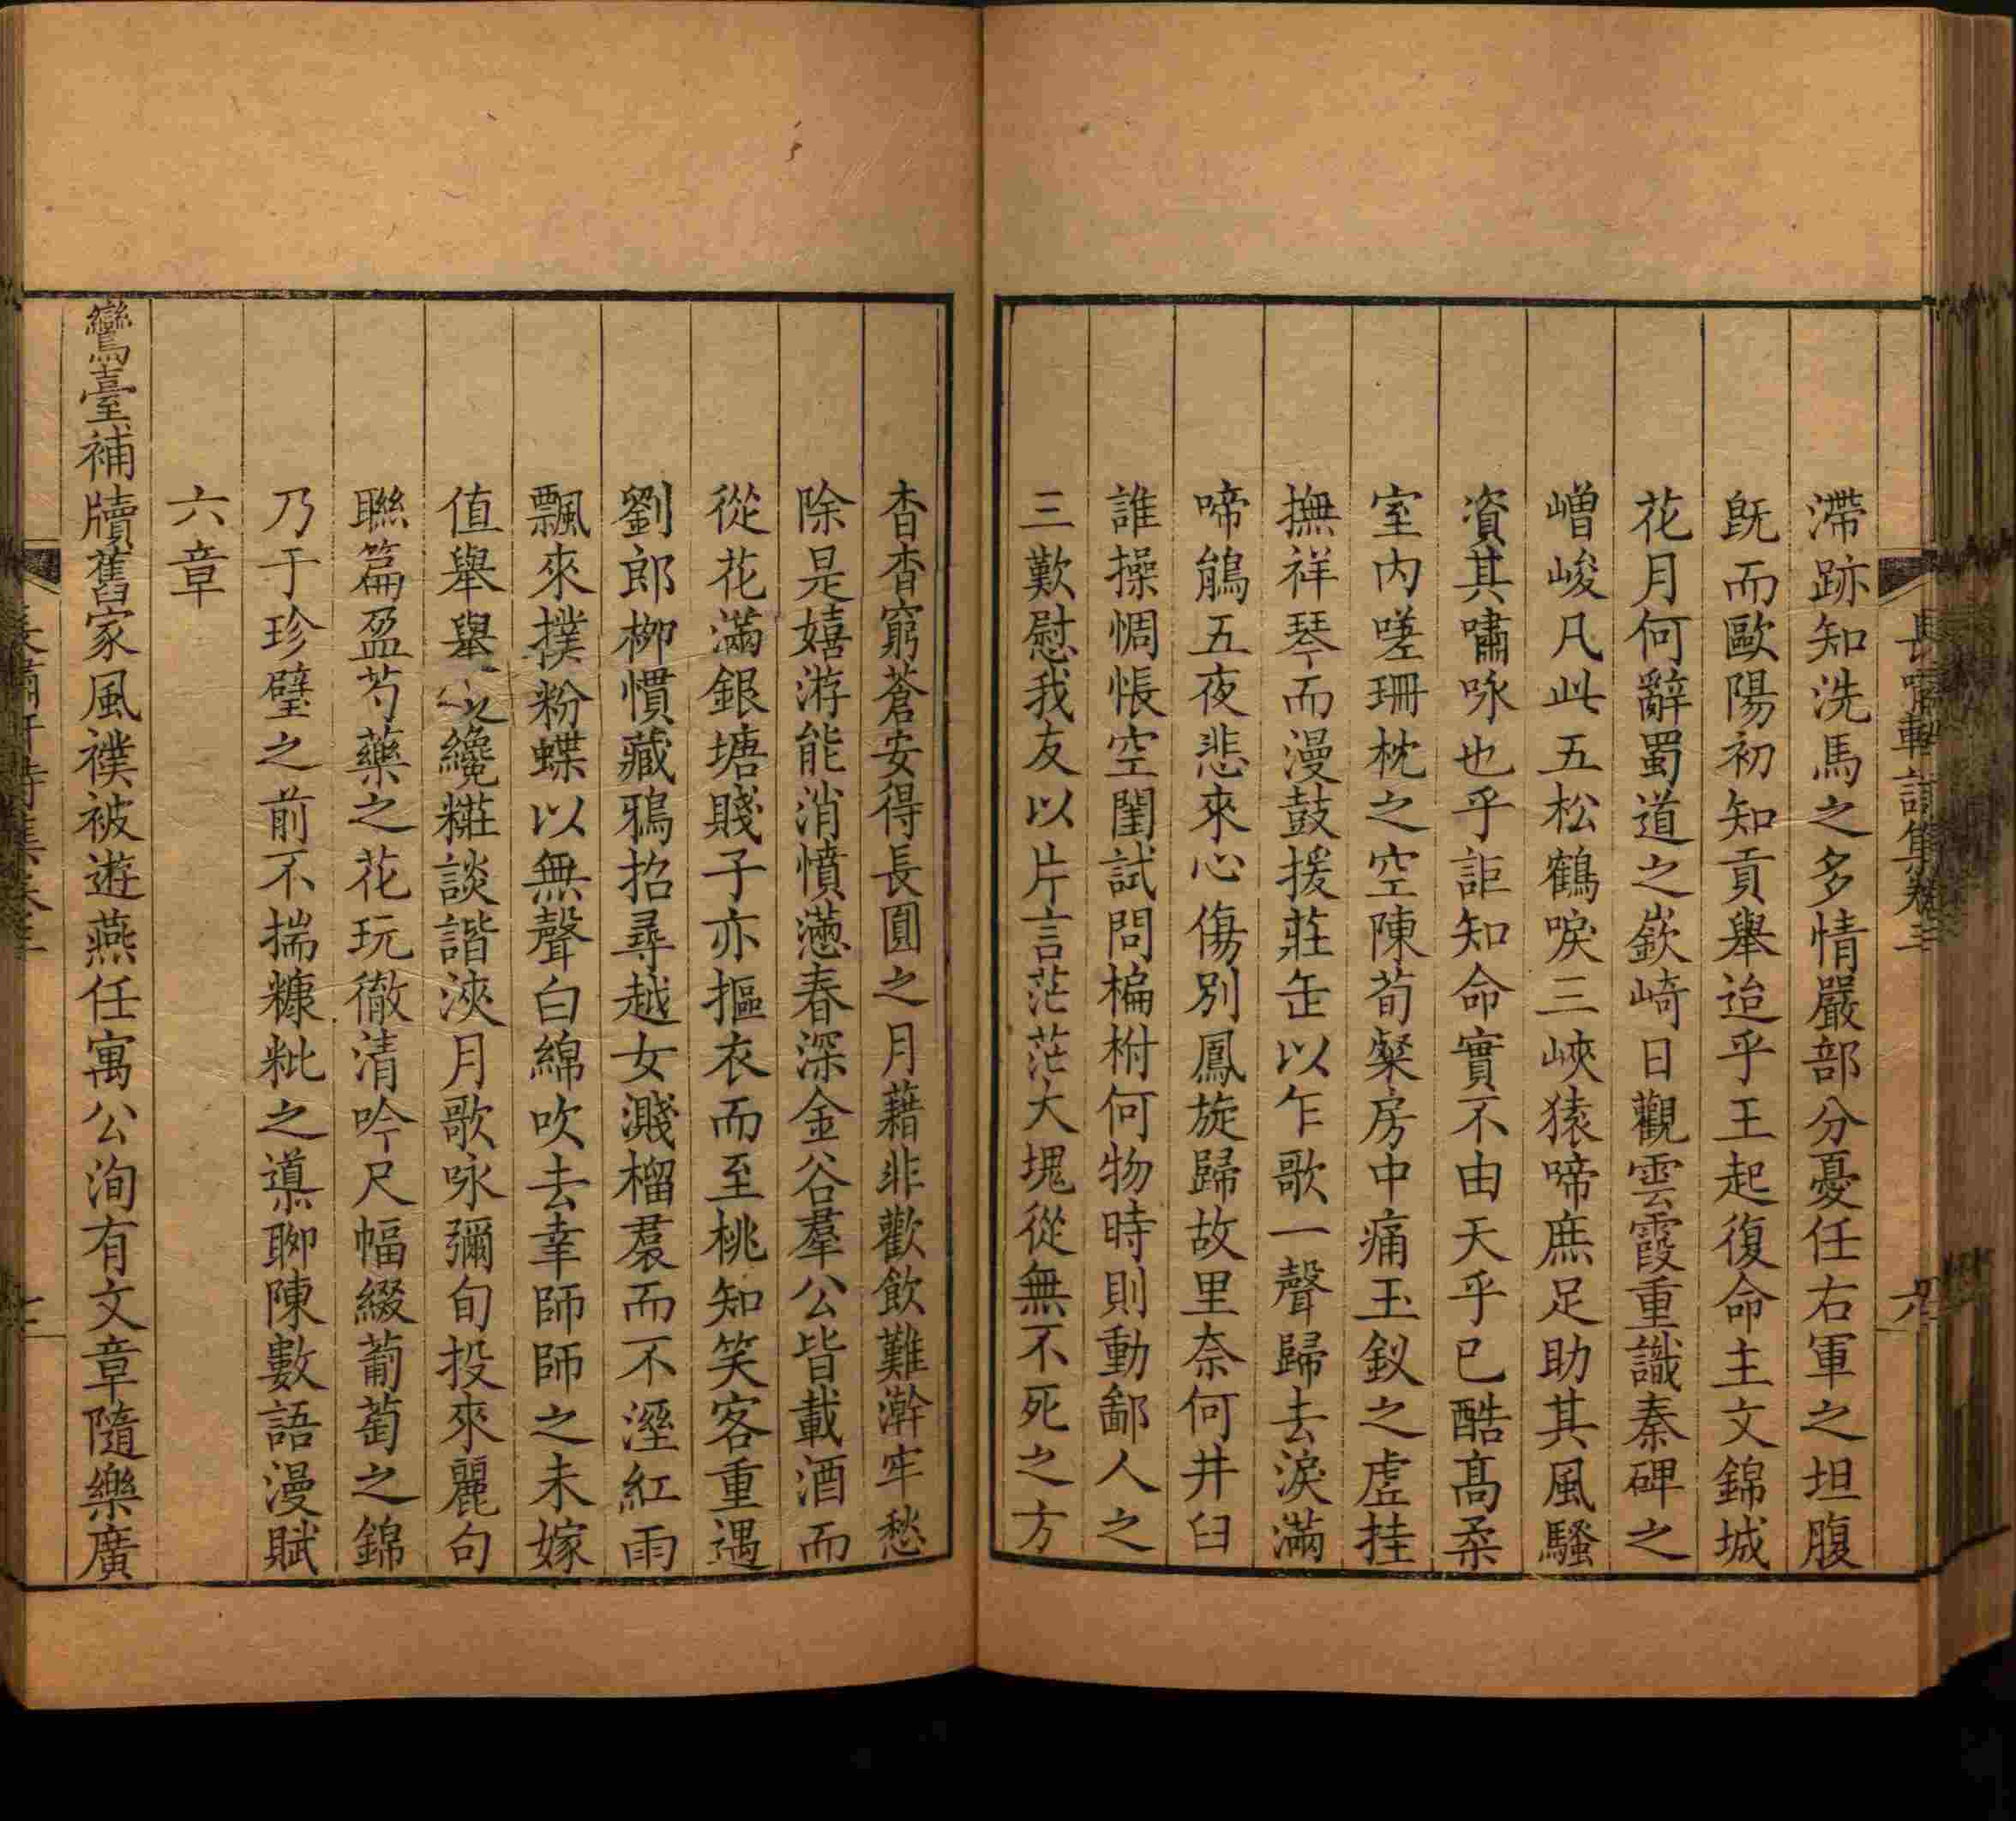 長嘯軒詩集卷三
六
滯跡知洗馬之多情嚴部分憂任右軍之坦腹
旣而歐陽初知貢舉迨乎王起復命主文錦城
花月何辭蜀道之嶔崎日觀雲霞重識秦碑之
嶒峻凡此五松鶴唳三峽猿啼庶足助其風騷
資其嘯咏也乎詎知命實不由天乎已酷高柔
室內嗟珊枕之空陳荀粲房中痛玉釵之虛挂
撫祥琴而漫鼓援莊缶以乍歌一聲歸去淚滿
啼鵑五夜悲來心傷別鳳旋歸故里奈何井臼
誰操惆悵空閨試問楄柎何物時則動鄙人之
三歎慰我友以片言茫茫大塊從無不死之方
杳杳窮蒼安得長圓之月藉非歡飲難澣牢愁
除是嬉游能消憤懣春深金谷羣公皆載酒而
從花滿銀塘賤子亦摳衣而至桃知笑客重遇
劉郎栁慣藏鴉招尋越女濺榴裠而不溼紅雨
飄來撲粉蝶以無聲白綿吹去幸師師之未嫁
值舉舉之纔糚談諧浹月歌咏彌旬投來麗句
聯篇盈芍藥之花玩徹清吟尺幅綴葡萄之錦
乃于珍璧之前不揣糠粃之導聊陳數語漫賦
六章
鸞臺補牘舊家風襆被遊燕任寓公洵有文章隨樂廣